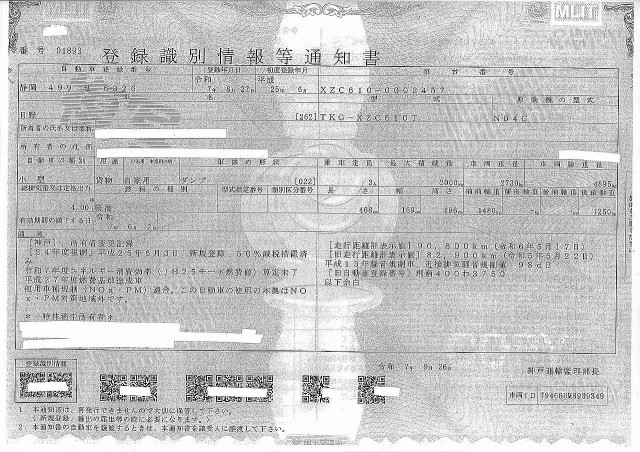 番号 01893
登録識別情報等通知書
自動車登録番号 登録年月日 初度登録年月 車台番号
令和 平成
静岡 499 6326 7年 8月27日 25年 6月 XZC610-0002457
車名 型式 原動機の型式
日野 [262] TKG-XZC610T N04C
所有者の氏名又は名称
所有者の住所
自動車の種別 用途 自家用・事業用の別 車体の形状 乗車定員 最大積載量 車両重量 車両総重量
小型 貨物 自家用 ダンプ [022] 3人 2000kg 2730kg 4895kg
総排気量又は定格出力 燃料の種類 型式指定番号 類別区分番号 長さ 幅 高さ 前前軸重 前後軸重 後前軸重 後後軸重
4.00 軽油 468cm 169cm 196cm 1480kg 1250kg
有効期間の満了する日
令和 6月 2日
備考
[神戸], 所有者変更記録
[24年度規制] 平成25年6月3日 新規登録, 50%減税措置済
み
令和7年度エネルギー消費効率 (JH25モード燃費値) 算定未了
平成27年度燃費基準達成車
使用車種規制(NOx・PM)適合, この自動車の使用の本拠はNO
x・PM対策地域外です。
[走行距離計表示値] 90,800km (令和6年5月17日)
[旧走行距離計表示値] 82,900km (令和5年5月22日)
平成13年騒音規制車, 近接排気騒音規制値 98dB
[旧自動車登録番号]
以下余白
登録識別情報
令和 7年 9月26日 神戸運輸監理部長
車両ID
1 本通知書は、再発行できませんので大切に保管して下さい。
(新規登録、輸出の届出等の際に必要になります。)
2. 本通知書の自動車を譲渡するときは、本通知書を譲受人に譲渡して下さい。